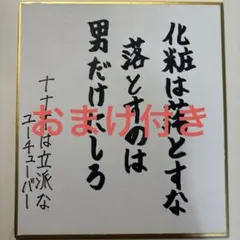 化粧は落とすな
落とすのは
男だけにしろ
ナナオは立派な
ユーチューバー
おまけ付き